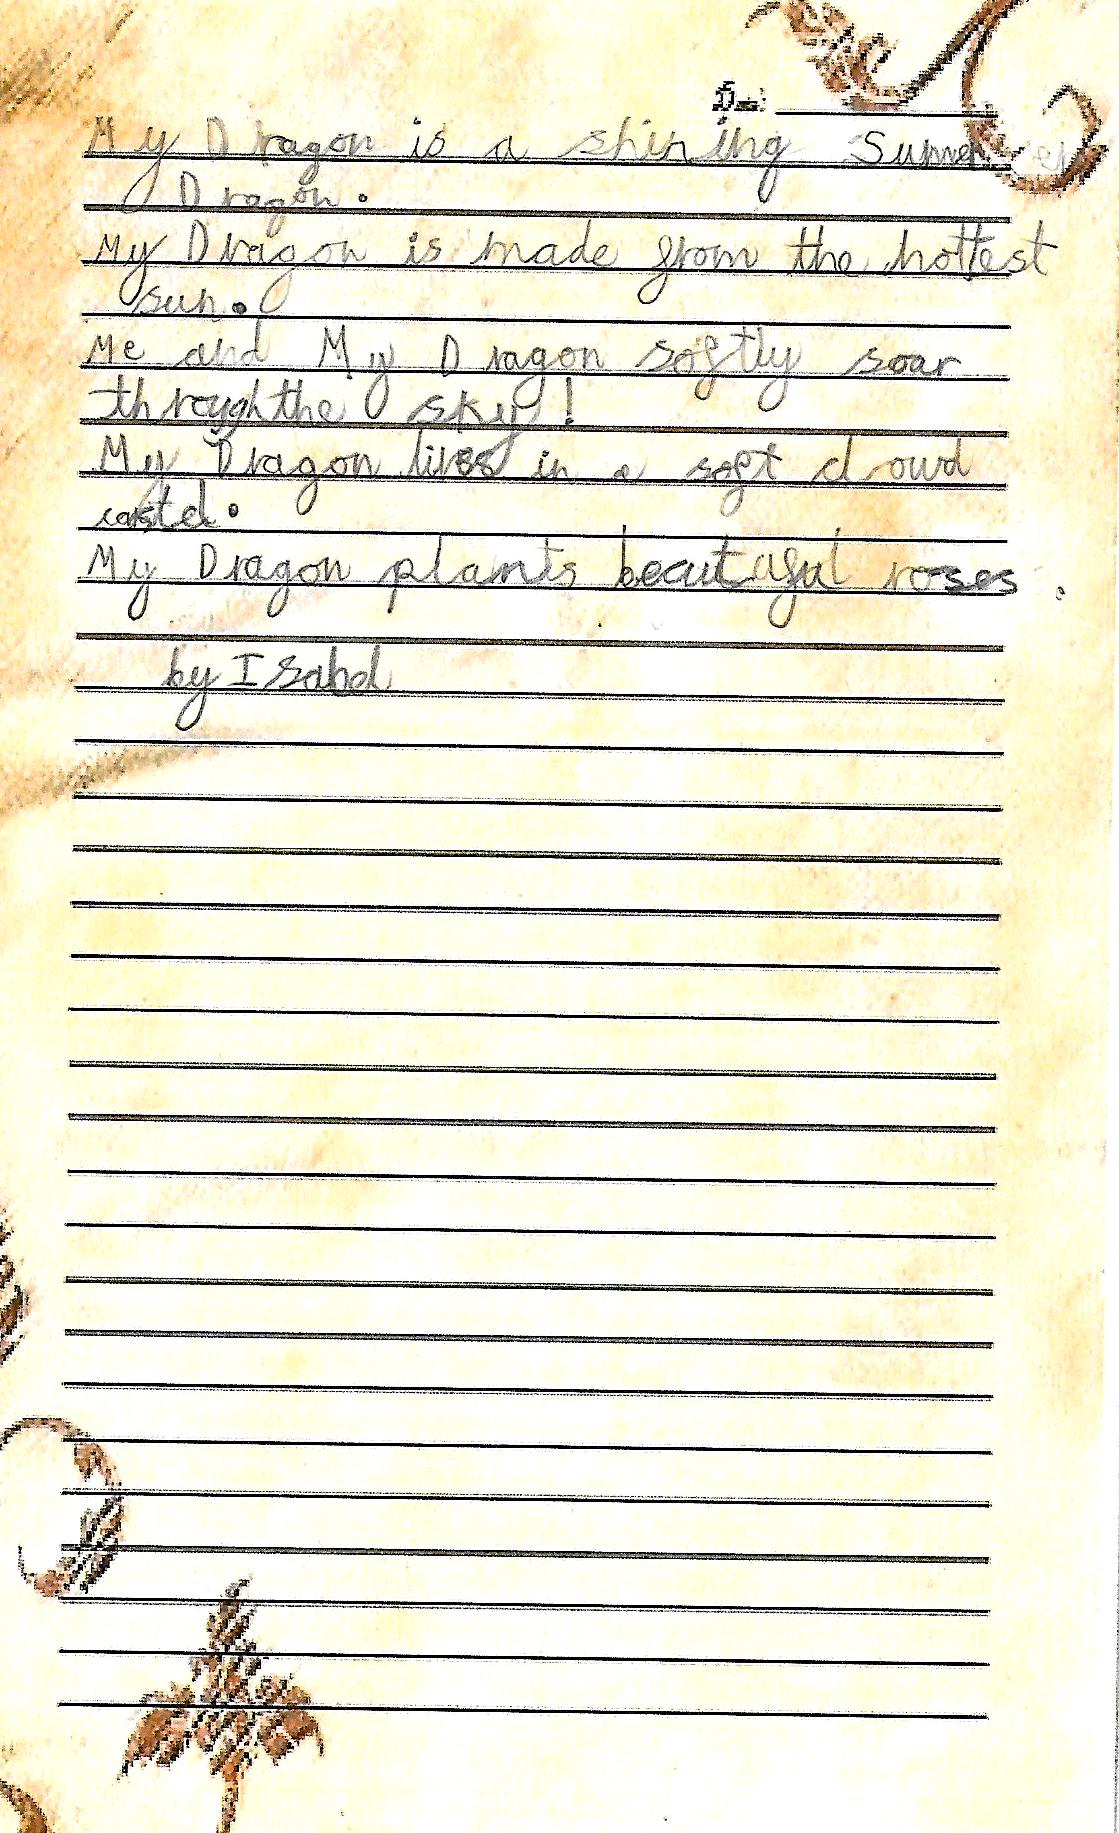 My Dragon is a shining Summer
Dragon.
My Dragon is made from the hottest
sun.
Me and My Dragon softly soar
throughthe sky!
My Dragon lives in a soft clowd
castel.
My Dragon plants beautaful roses.
by Isabel